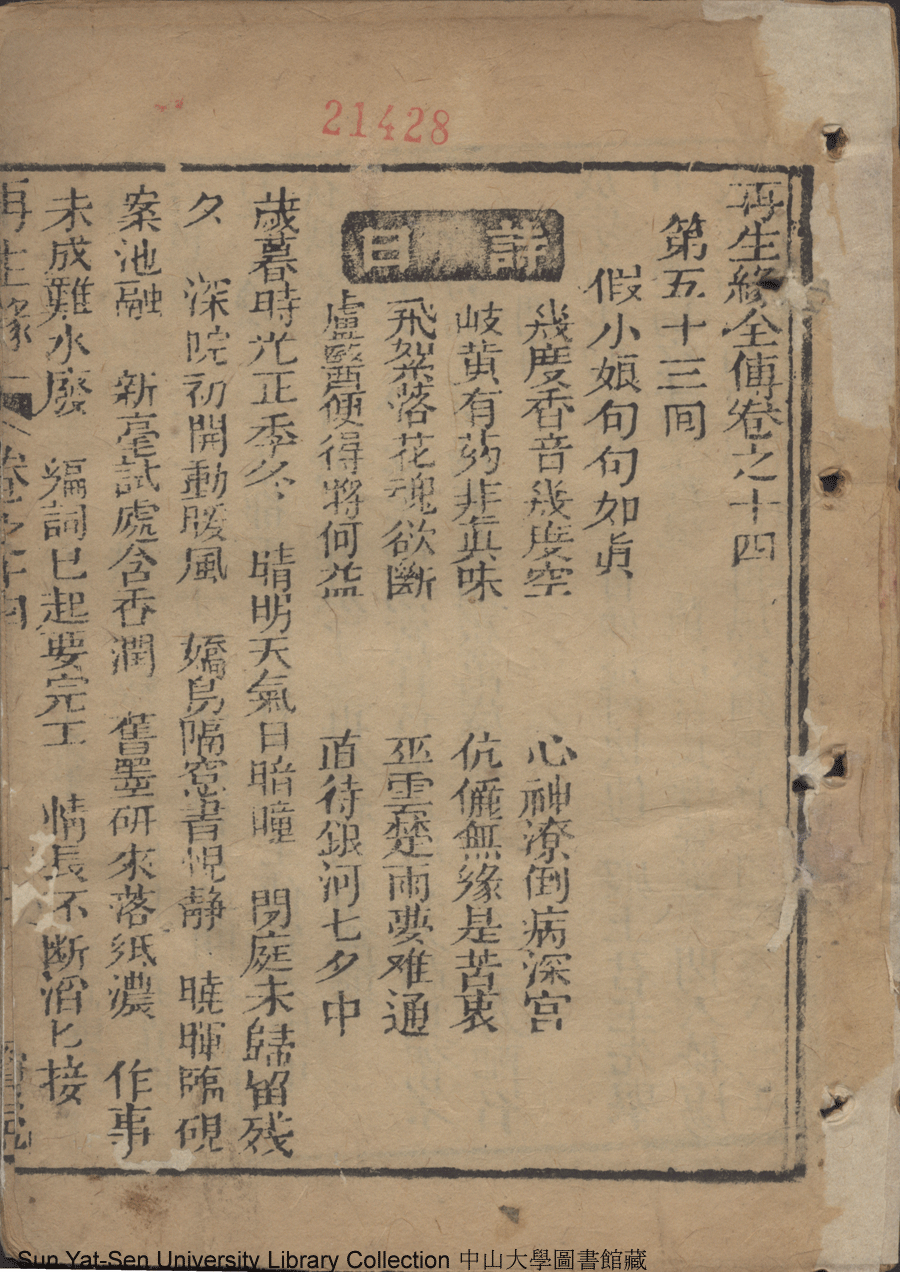 21428
再生緣全傳卷之十四
第五十三囘
假小娘句句如真
詩曰
幾度香音幾度空 心神潦倒病深宮
岐黃有葯非真味 伉儷無緣是苦衷
飛絮落花魂欲断 巫雲楚雨夢难通
盧醫便得將何益 直待銀河七夕中
歲暮時光正季冬 晴明天氣日暗曈 閉庭未歸留残
夕 深院初開動暖風 嬌鳥隔窓書幌静 曉暉臨硯
案池融 新毫試處含香潤 舊墨研來落紙濃 作事
未成難水廢 编詞已起要完工 情長不断滔匕接
再生緣 卷之十四
Sun Yat-Sen University Library Collection 中山大學圖書館藏